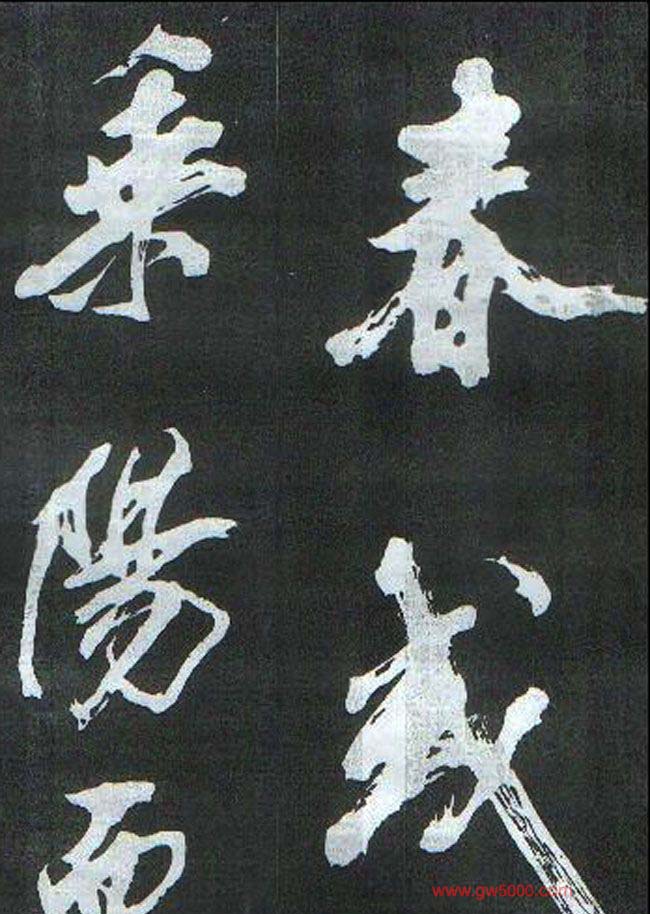 春
乘陽而
www.gw5000.com